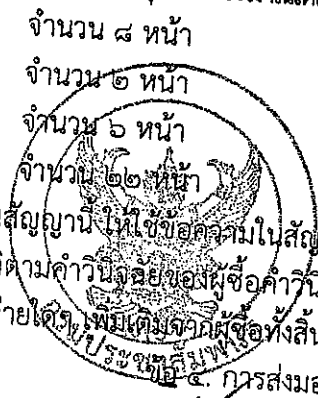 จำนวน ๘ หน้า
จำนวน ๒ หน้า
จำนวน ๖ หน้า
จำนวน ๒๒ หน้า
สัญญานี้ ให้ใช้ข้อความในสัญ
ิตามคำวินิจฉัยของผู้ซื้อ คำวินิ
จ่ายใดๆ เพิ่มเติมจากผู้ซื้อทั้งสิ้น
ข้อ ๕. การส่งมอ